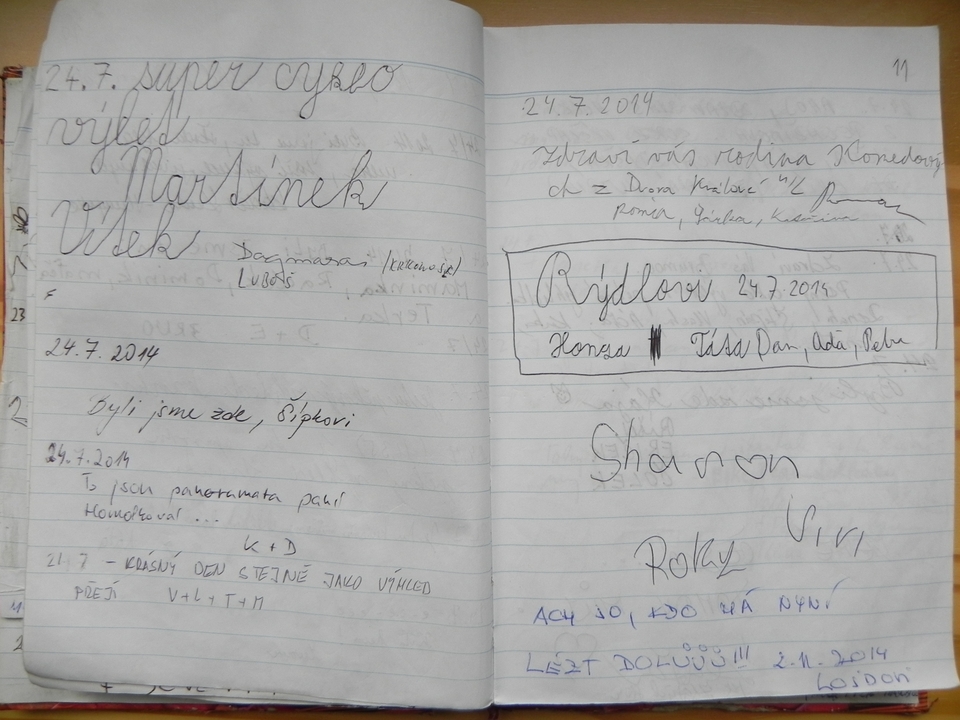 24.7. super cyklo
výlet
Martínek
Vítek Dagmara (KRKONOŠE)
LUBOŠ
24.7.2014
Byli jsme zde, Šípkovi
24.7.2014
To jsou panoramata paní
Homolková! ...
K + D
21.7 - KRÁSNÝ DEN STEJNĚ JAKO VÝHLED
PŘEJÍ V+L+T+M
11
24.7.2014
Zdraví vás rodina
z Dvora Králové n/L
Roman,
Rýdlovi 24.7.2014
Honza Táša Dan, Ada, Petr
Sharon
Vivi
Roky
ACH JO, KDO MÁ NYNÍ
LÉZT DOLŮŮŮ!!! 2.11.2014